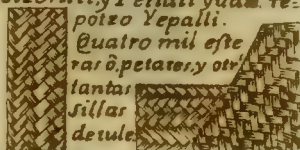 potzo Yepalli.
Quatro mil este
ras ó, petates, y otr
tantas
sillas
de tule